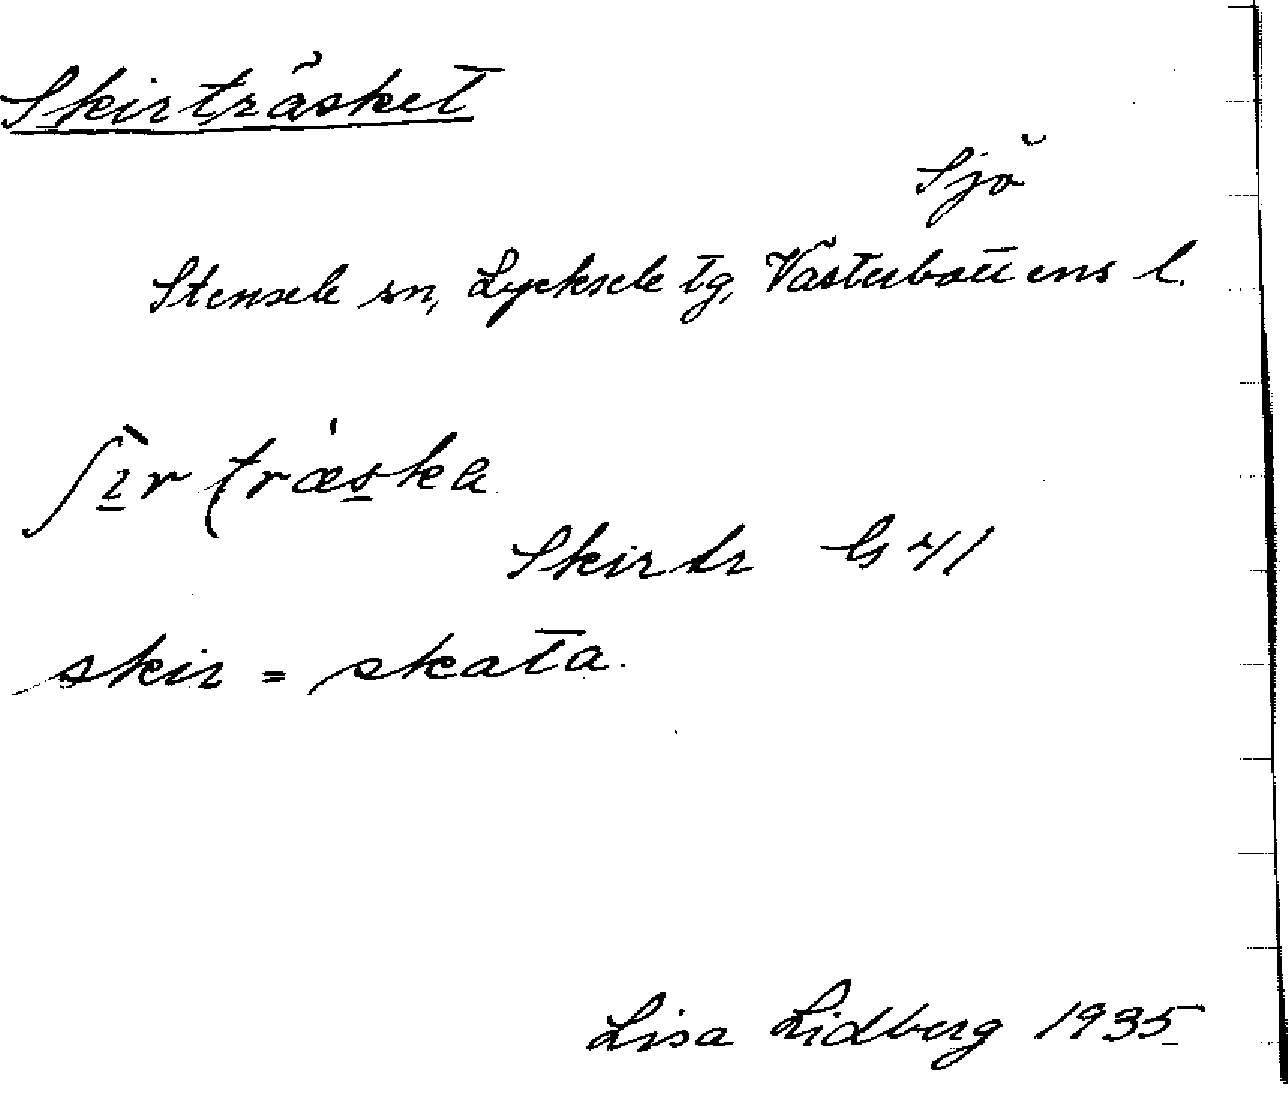 Skirträsket
Sjö
Stensele sn, Lycksele tg, Västerbottens l.
ʃɪ̀r træ̍ska
Skirtr G 41
skir = skata.
Lisa Lidberg 1935